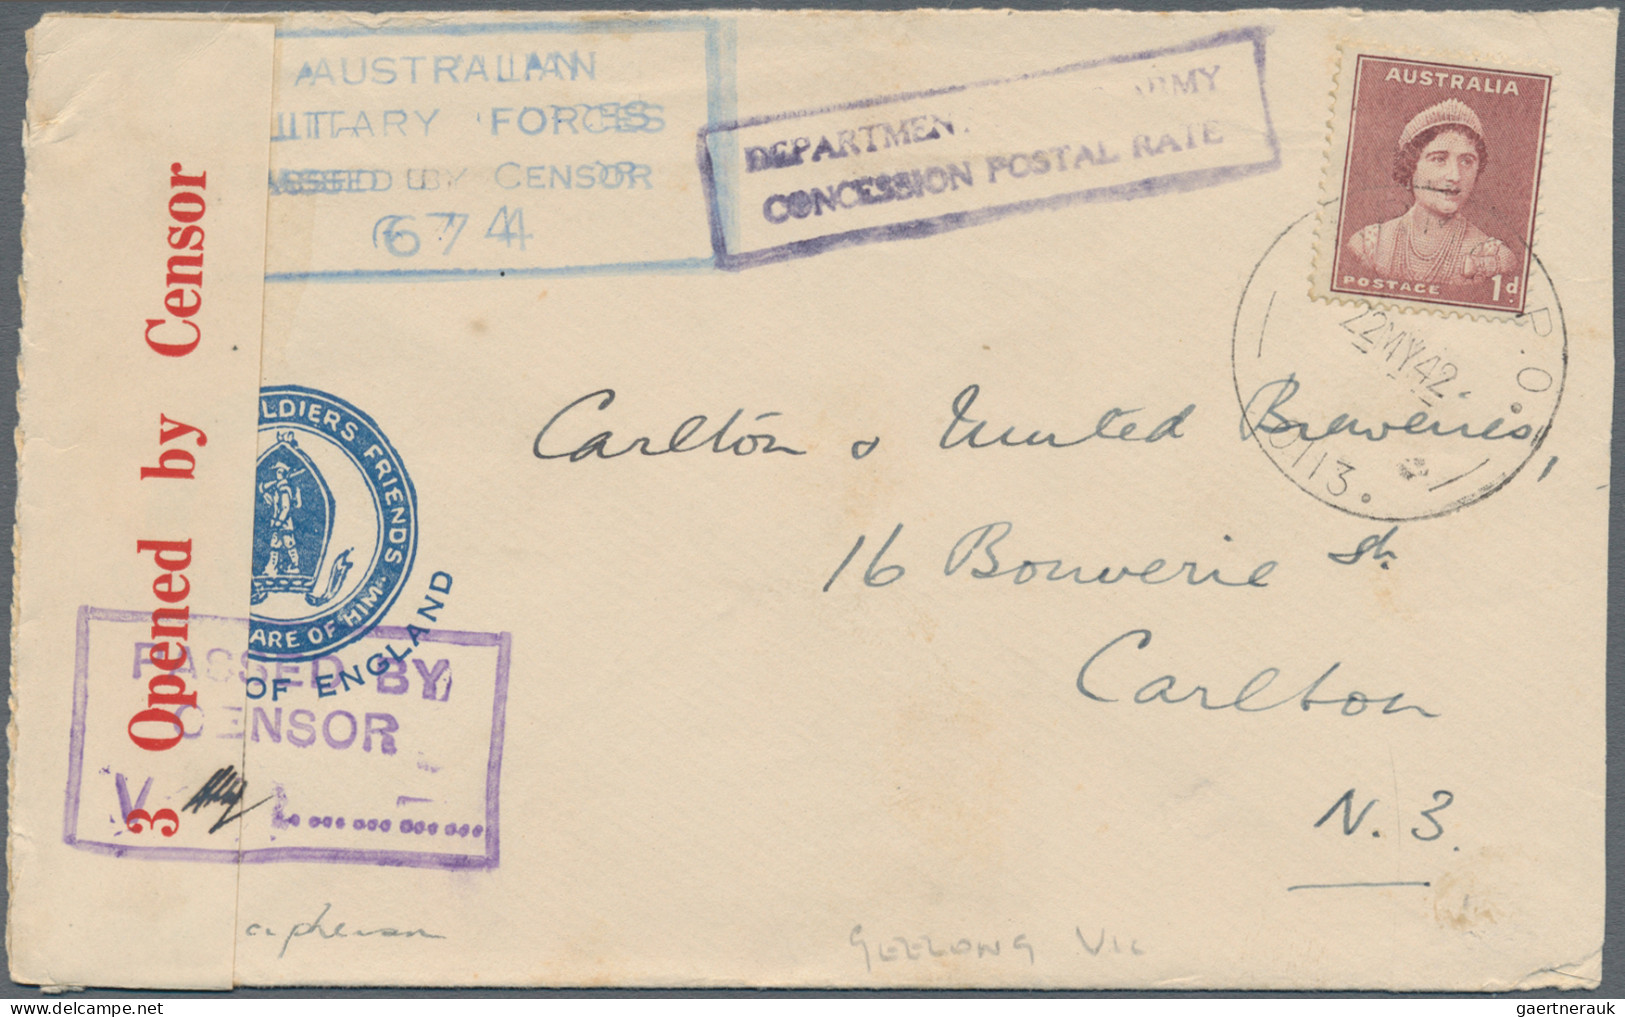 AUSTRALIAN
LITARY FORCES
ASSED BY CENSOR
674
DEPARTMEN ARMY
CONCESSION POSTAL RATE
AUSTRALIA
POSTAGE 1d.
P.O.
22MY42
0113.
3 Opened by Censor
LDIERS FRIENDS
ARE OF HIM.
OF ENGLAND
PASSED BY
CENSOR
V
Carlton & United Breweries,
16 Bouverie St.
Carlton
N.3.
GEELONG VIC
gaertnerauk